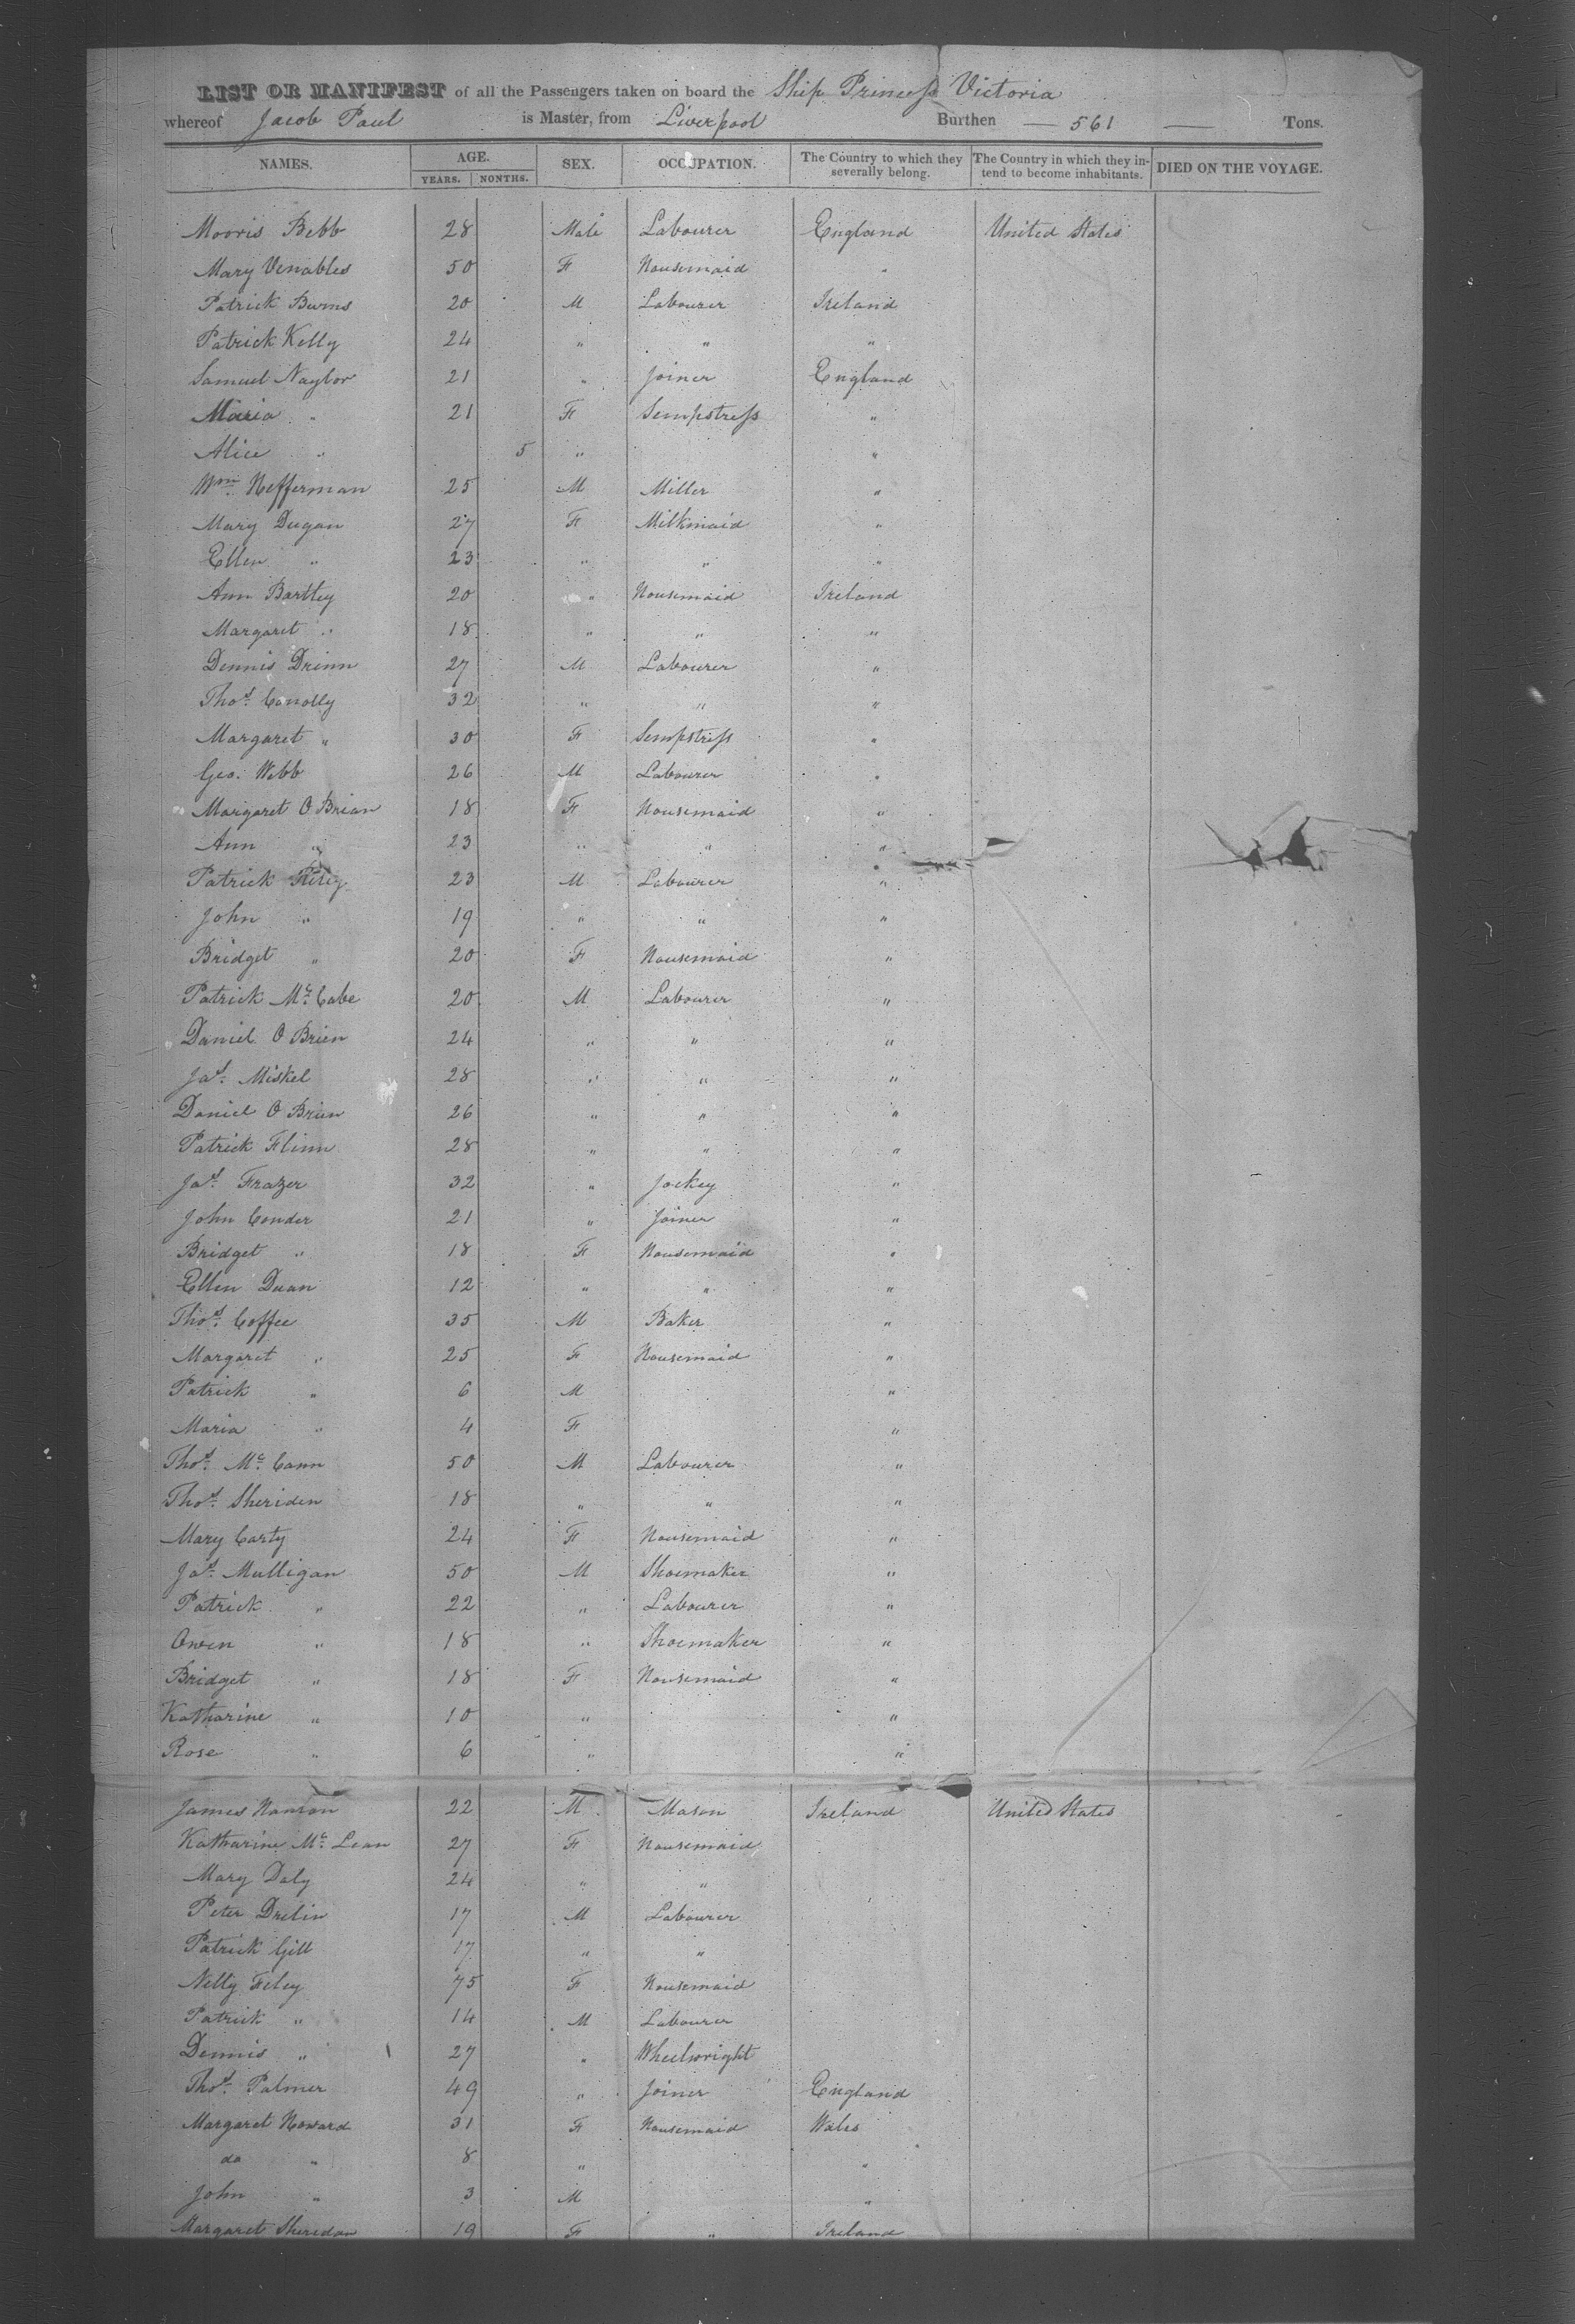 LIST OR MANIFEST of all the Passengers taken on board the Ship Princess Victoria
whereof Jacob Paul is Master, from Liverpool Burthen — 561 — Tons.
NAMES. AGE. SEX. OCCUPATION. The Country to which they severally belong. The Country in which they intend to become inhabitants. DIED ON THE VOYAGE.
YEARS. MONTHS.
Morris Bebb 28 Male Labourer England United States
Mary Venables 50 F Housemaid "
Patrick Burns 20 M Labourer Ireland
Patrick Kelly 24 " " "
Samuel Naylor 21 " Joiner England
Maria " 21 F Sempstress "
Alice " 5 " "
Wm. Hefferman 25 M Miller "
Mary Dugan 27 F Milkmaid "
Ellen " 23 " " "
Ann Bartley 20 " Housemaid Ireland
Margaret " 18 " " "
Dennis Drinn 27 M Labourer "
Thos. Conolly 32 " " "
Margaret " 30 F Sempstress "
Geo. Webb 26 M Labourer "
Margaret O Brian 18 F Housemaid "
Ann " 23 " " "
Patrick 23 M Labourer "
John " 19 " " "
Bridget " 20 F Housemaid "
Patrick Mc. Cabe 20 M Labourer "
Daniel O Brien 24 " " "
Jas. Miskel 28 " " "
Daniel O Brien 26 " " "
Patrick Flinn 28 " " "
Jas. Frazer 32 " Jockey "
John Conder 21 " Joiner "
Bridget " 18 F Housemaid "
Ellen Duan 12 " " "
Thos. Coffee 35 M Baker "
Margaret " 25 F Housemaid "
Patrick " 6 M "
Maria " 4 F "
Thos. Mc. Cann 50 M Labourer "
Thos. Sheriden 18 " " "
Mary Carty 24 F Housemaid "
Jas. Mulligan 50 M Shoemaker "
Patrick " 22 " Labourer "
Owen " 18 " Shoemaker "
Bridget " 18 F Housemaid "
Katharine " 10 " "
Rose " 6 " "
James Hanson 22 M Mason Ireland United States
Katharine Mc. Lean 27 F Housemaid
Mary Daly 24 " "
Peter Drelin 17 M Labourer
Patrick Gill 17 " "
Nelly Feley 75 F Housemaid
Patrick " 14 M Labourer
Dennis " 27 " Wheelwright
Thos. Palmer 49 " Joiner England
Margaret Howard 31 F Housemaid Wales
do " 8 " "
John " 3 M "
Margaret Sheridan 19 F " Ireland